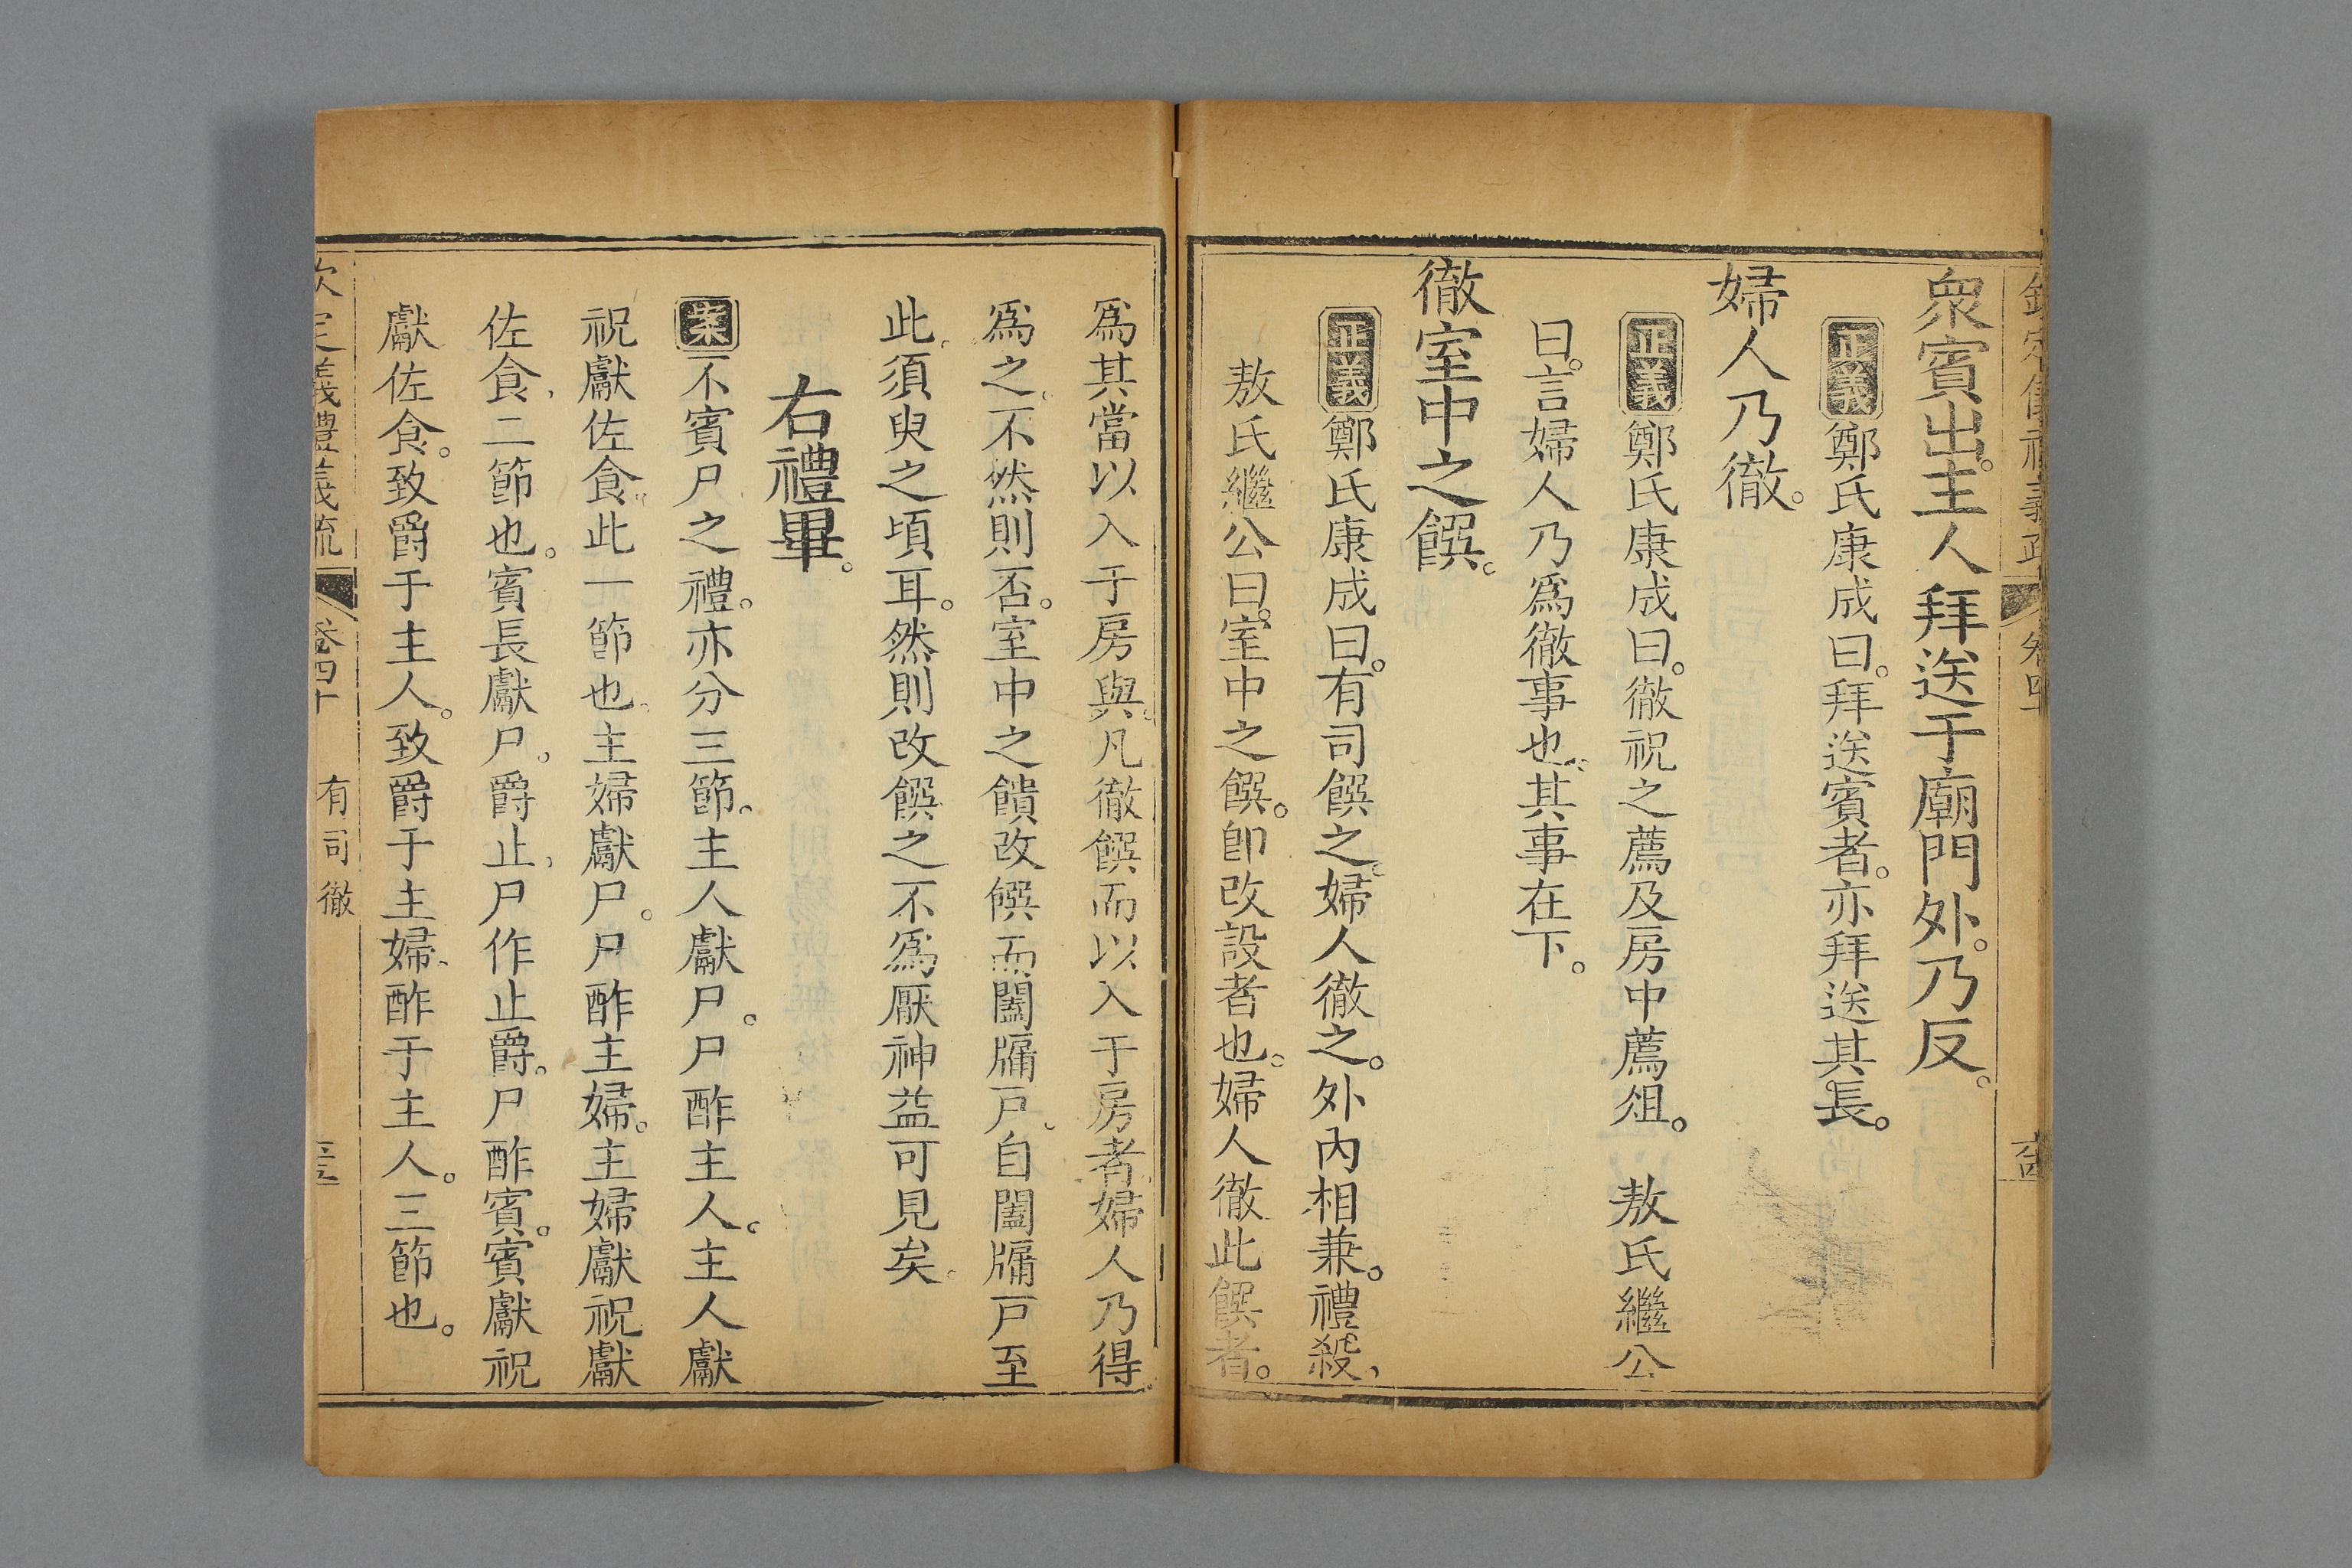 衆賓出。主人拜送于廟門外。乃反。
正義鄭氏康成曰。拜送賓者。亦拜送其長。
婦人乃徹。
正義鄭氏康成曰。徹祝之薦及房中薦俎。 敖氏繼公
曰。言婦人乃爲徹事也。其事在下。
徹室中之饌。
正義鄭氏康成曰。有司饌之。婦人徹之。外內相兼。禮殺、
敖氏繼公曰。室中之饌。卽改設者也。婦人徹此饌者。
爲其當以入于房與。凡徹饌而以入于房者。婦人乃得
爲之。不然則否。室中之饋改饌而闔牖戸。自闔牖戸至
此。須臾之頃耳。然則改饌之不爲厭神益可見矣。
右禮畢。
案不賓尸之禮。亦分三節。主人獻尸。尸酢主人。主人獻
祝獻佐食。此一節也。主婦獻尸。尸酢主婦。主婦獻祝獻
佐食、二節也。賓長獻尸。爵止、尸作止爵。尸酢賓。賓獻祝
獻佐食。致爵于主人。致爵于主婦、酢于主人。三節也。
欽定義禮義疏 卷四十 有司徹